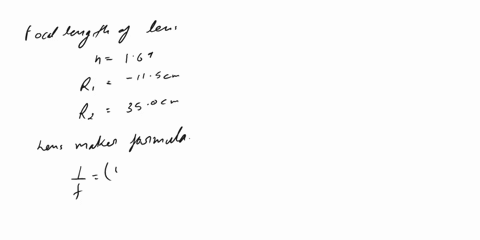 Focal length of lens
n = 1.69
R1 = -11.5cm
R2 = 35.0cm
Lens makes formula.
1/f = (